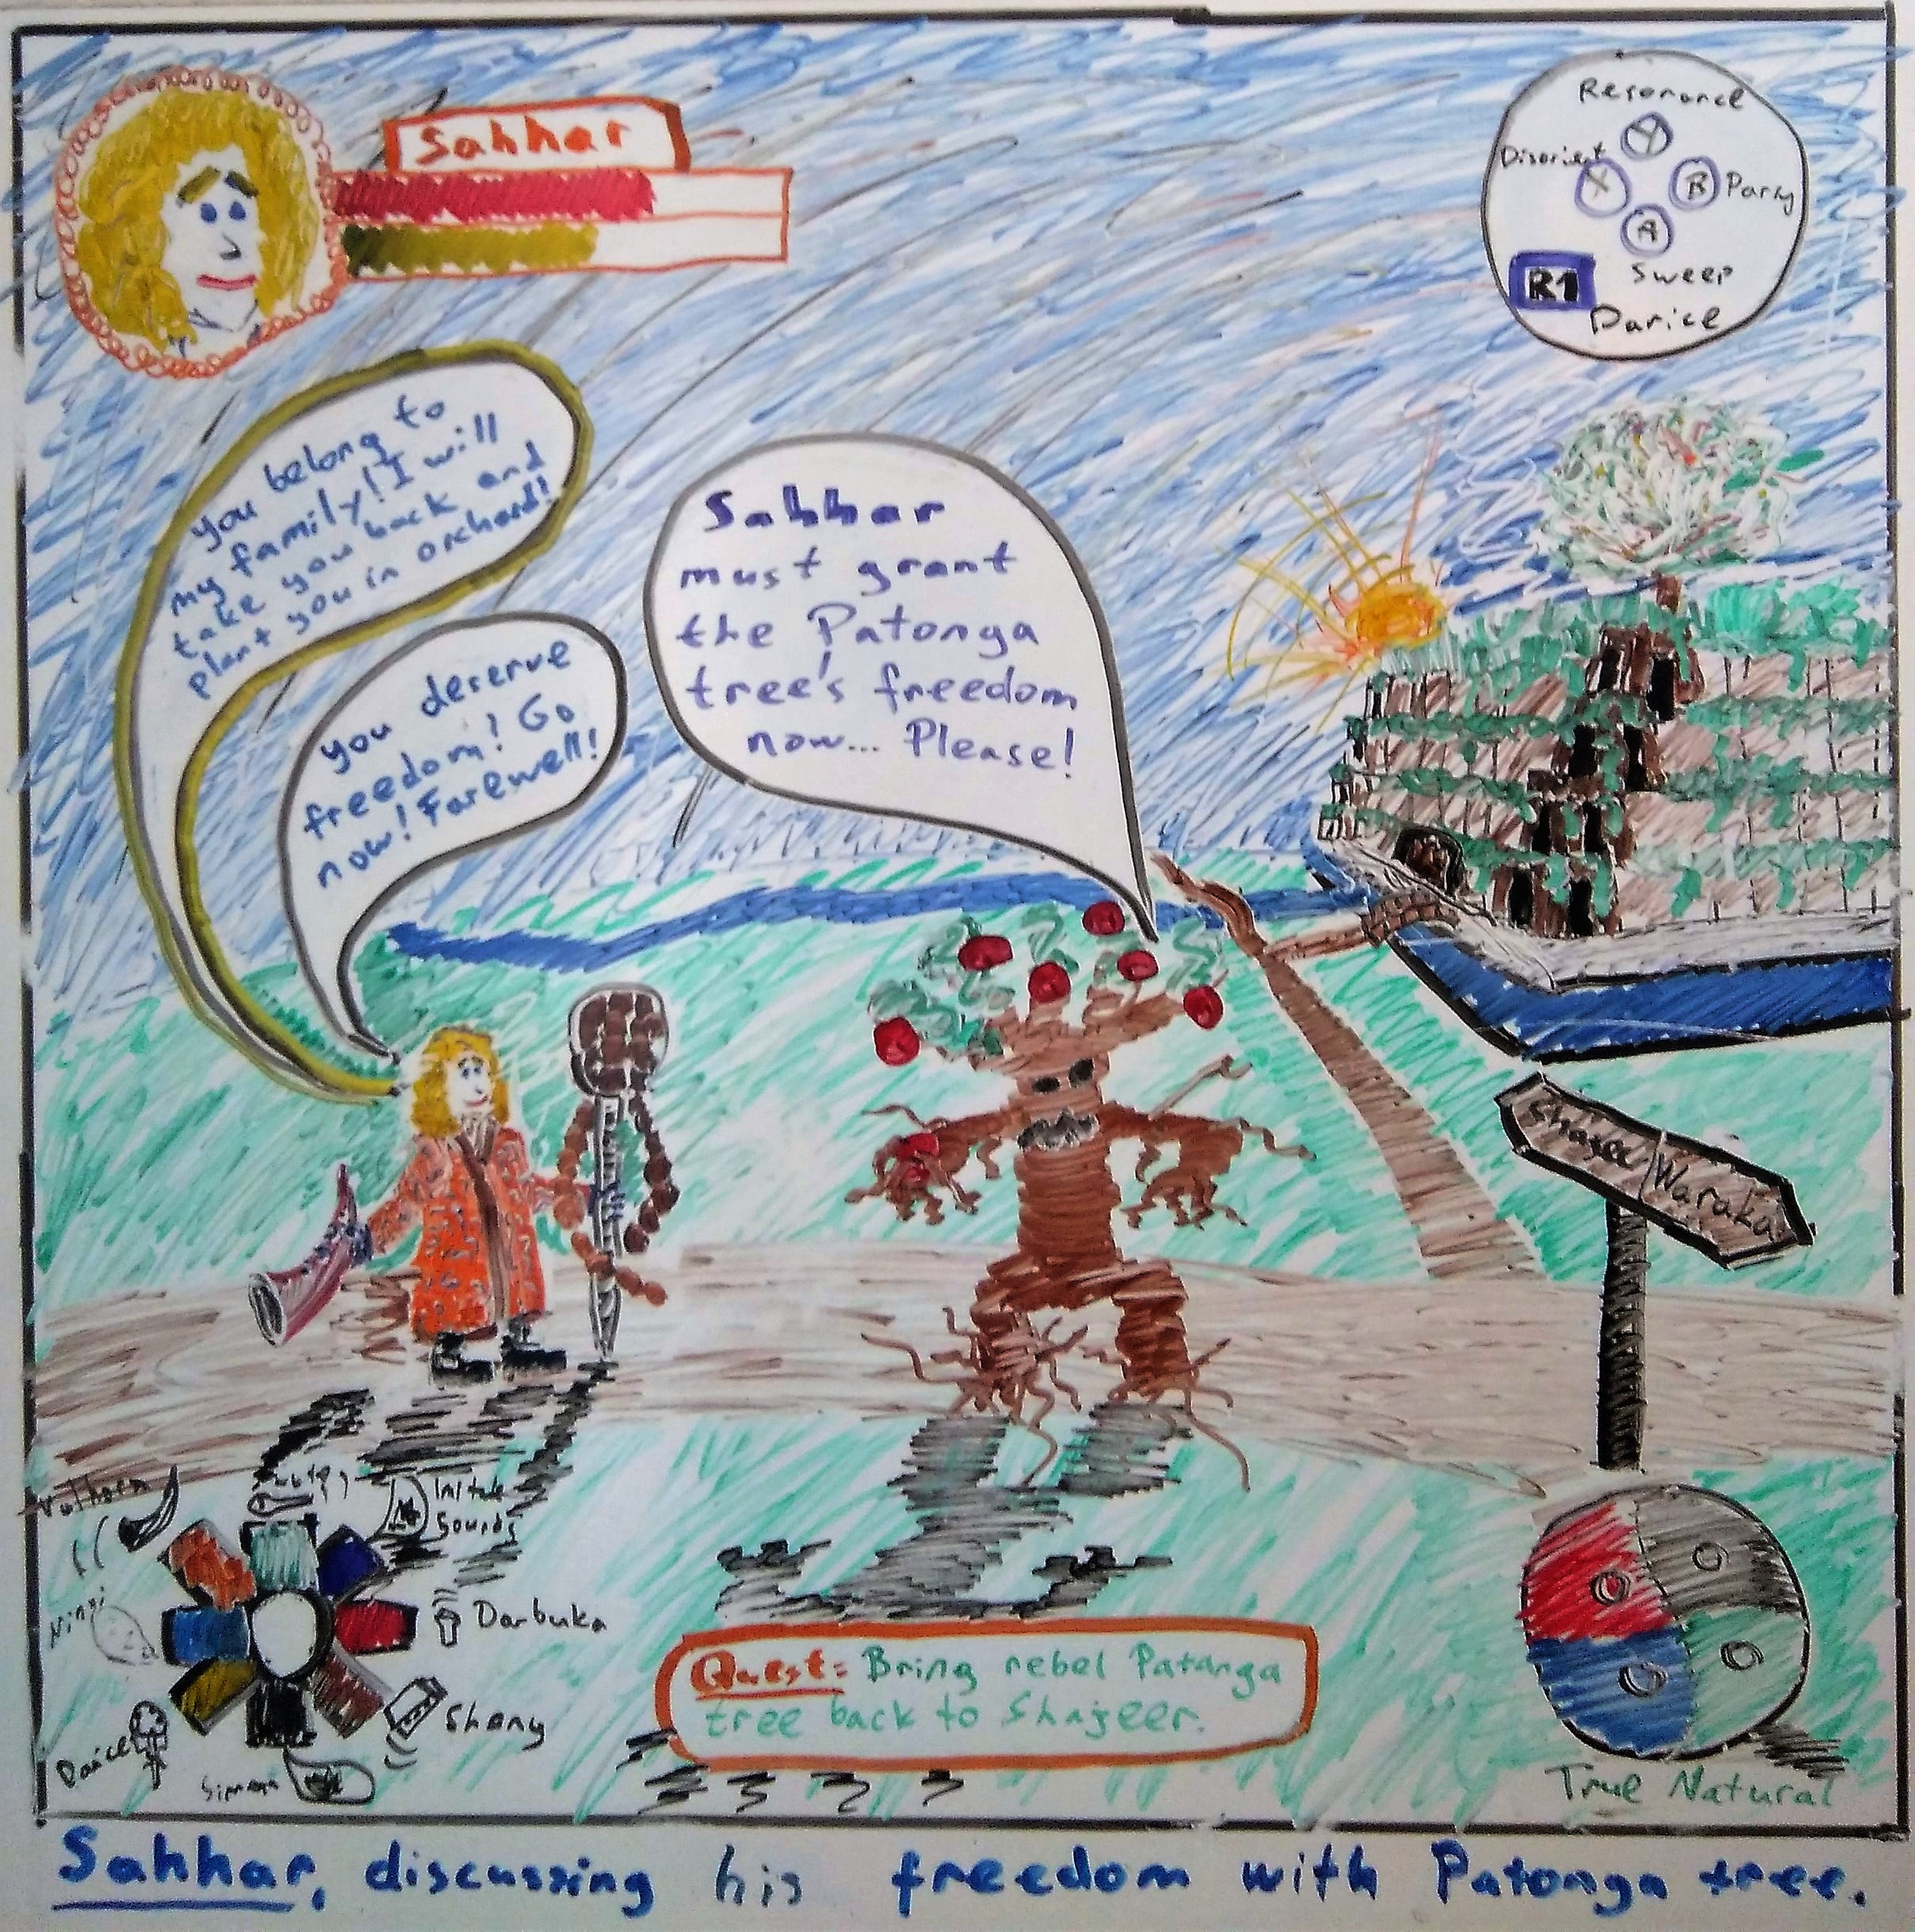 Sahhar
Resonance
Y
Disorient
X
B Parry
A
Sweep
R1
Darice
you belong to
my family! I will
take you back and
plant you in orchard!
you deserve
freedom! Go
now! Farewell!
Sahhar
must grant
the Patonga
tree's freedom
now... Please!
Shajee
Waraka
Sounds
Darbuka
Shany
Quest: Bring rebel Patanga
tree back to Shajeer.
True Natural
Sahhar, discussing his freedom with Patonga tree.